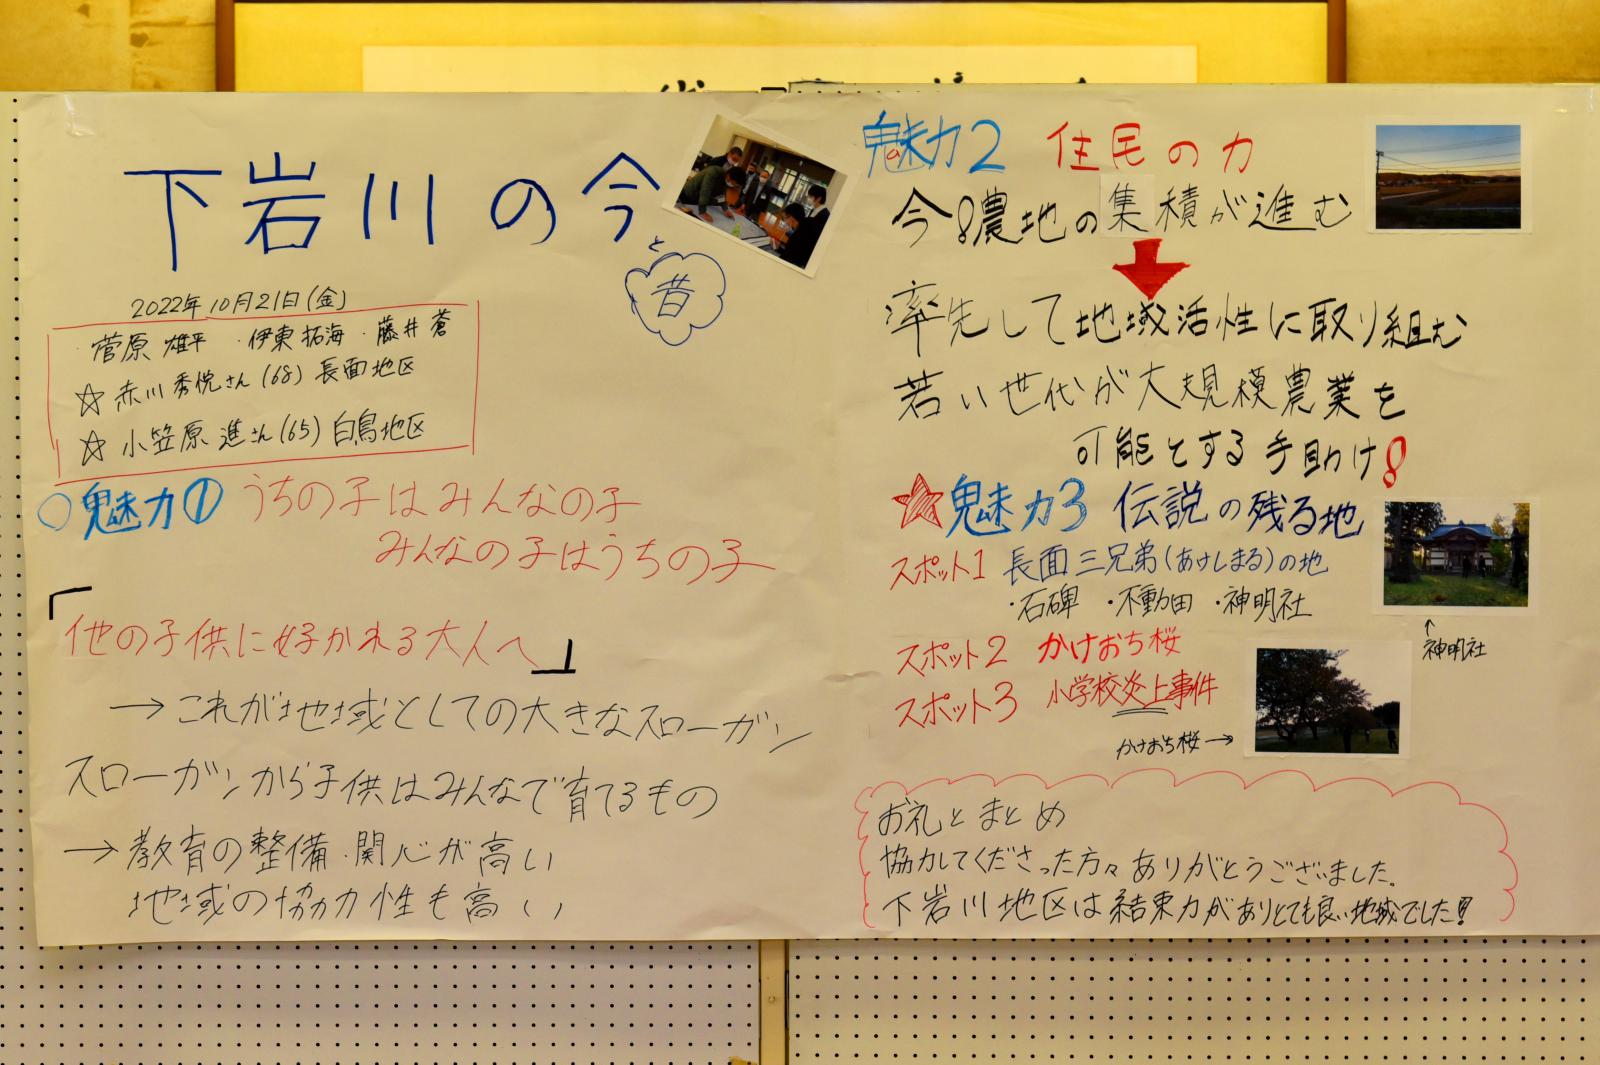 下岩川の今
と
昔
2022年10月21日(金)
・菅原 雄平 ・伊東拓海 ・藤井蒼
☆赤川秀悦さん(68)長面地区
☆小笠原進さん(65)白鳥地区
○魅力① うちの子はみんなの子
みんなの子はうちの子
「他の子供に好かれる大人へ」
→これが地域としての大きなスローガン
スローガンから子供はみんなで育てるもの
→教育の整備・関心が高い
地域の協力性も高い
魅力2 住民の力
今!農地の集積が進む
率先して地域活性に取り組む
若い世代が大規模農業を
可能とする手助け!
★魅力3 伝説の残る地
スポット1 長面三兄弟(あけしまる)の地
・石碑 ・不動田 ・神明社
↑
神明社
スポット2 かけおち桜
スポット3 小学校炎上事件
かけおち桜→
お礼とまとめ
協力してくださった方々ありがとうございました。
下岩川地区は結束力がありとても良い地域でした!!